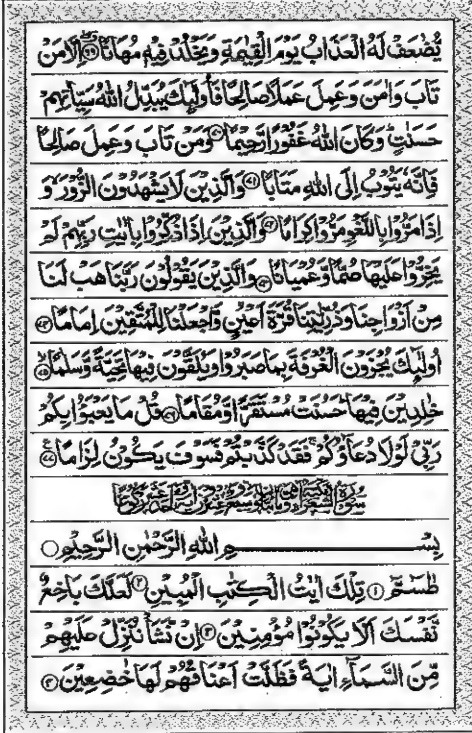 يُّضٰعَفْ لَهُ الْعَذَابُ يَوْمَ الْقِيٰمَةِ وَيَخْلُدْ فِيْهٖ مُهَانًا ۝٦٩ اِلَّا مَنْ
تَابَ وَاٰمَنَ وَعَمِلَ عَمَلًا صَالِحًا فَاُولٰٓئِكَ يُبَدِّلُ اللّٰهُ سَيِّاٰتِهِمْ
حَسَنٰتٍ ؕ وَكَانَ اللّٰهُ غَفُوْرًا رَّحِيْمًا ۝٧٠ وَمَنْ تَابَ وَعَمِلَ صَالِحًا
فَاِنَّهٗ يَتُوْبُ اِلَى اللّٰهِ مَتَابًا ۝٧١ وَالَّذِيْنَ لَا يَشْهَدُوْنَ الزُّوْرَ ۙ وَ
اِذَا مَرُّوْا بِاللَّغْوِ مَرُّوْا كِرَامًا ۝٧٢ وَالَّذِيْنَ اِذَا ذُكِّرُوْا بِاٰيٰتِ رَبِّهِمْ لَمْ
يَخِرُّوْا عَلَيْهَا صُمًّا وَّعُمْيَانًا ۝٧٣ وَالَّذِيْنَ يَقُوْلُوْنَ رَبَّنَا هَبْ لَنَا
مِنْ اَزْوَاجِنَا وَذُرِّيّٰتِنَا قُرَّةَ اَعْيُنٍ وَّاجْعَلْنَا لِلْمُتَّقِيْنَ اِمَامًا ۝٧٤
اُولٰٓئِكَ يُجْزَوْنَ الْغُرْفَةَ بِمَا صَبَرُوْا وَيُلَقَّوْنَ فِيْهَا تَحِيَّةً وَّسَلٰمًا ۝٧٥
خٰلِدِيْنَ فِيْهَا ؕ حَسُنَتْ مُسْتَقَرًّا وَّمُقَامًا ۝٧٦ قُلْ مَا يَعْبَؤُا بِكُمْ
رَبِّيْ لَوْلَا دُعَآؤُكُمْ ۚ فَقَدْ كَذَّبْتُمْ فَسَوْفَ يَكُوْنُ لِزَامًا ۝٧٧
بِسْمِ اللّٰهِ الرَّحْمٰنِ الرَّحِيْمِ ۝
طٰسٓمّٓ ۝١ تِلْكَ اٰيٰتُ الْكِتٰبِ الْمُبِيْنِ ۝٢ لَعَلَّكَ بَاخِعٌ
نَّفْسَكَ اَلَّا يَكُوْنُوْا مُؤْمِنِيْنَ ۝٣ اِنْ نَّشَاْ نُنَزِّلْ عَلَيْهِمْ
مِّنَ السَّمَآءِ اٰيَةً فَظَلَّتْ اَعْنَاقُهُمْ لَهَا خٰضِعِيْنَ ۝٤